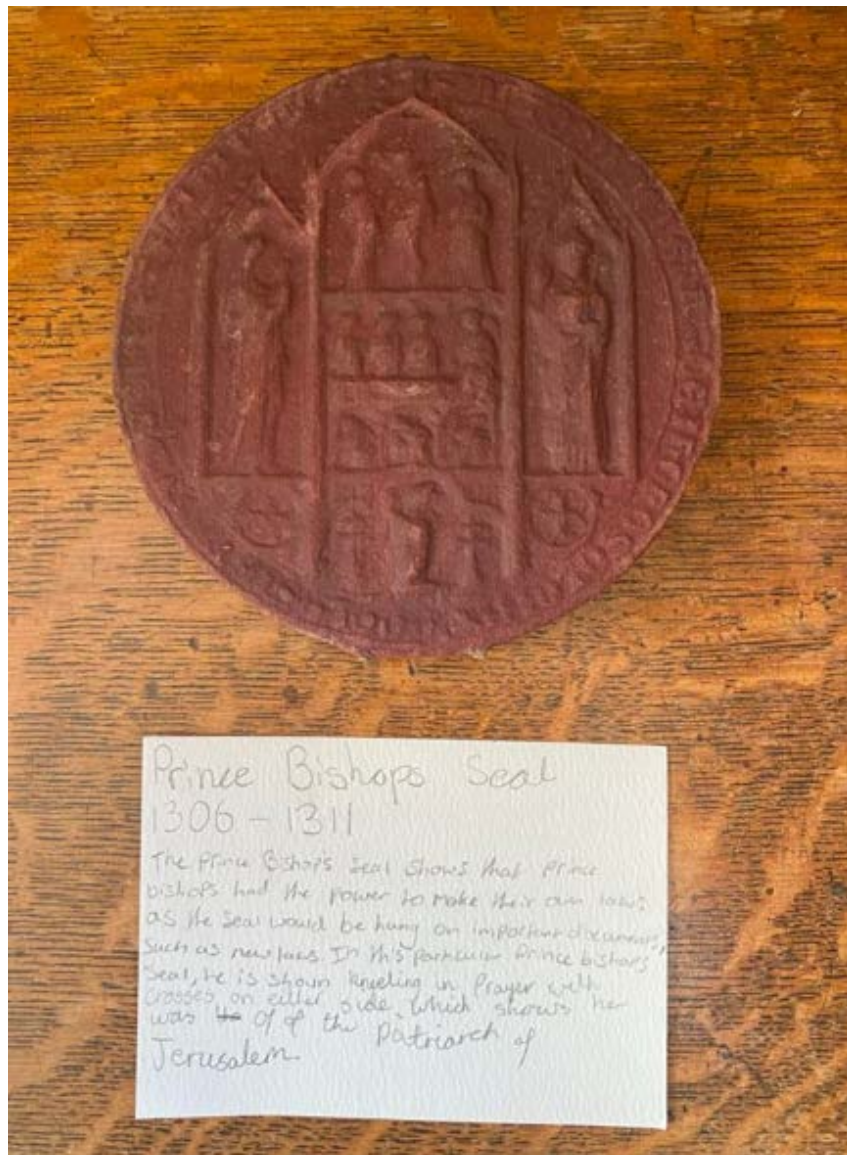 Prince Bishops Seal
1306 - 1311
The Prince Bishop's Seal shows that Prince
bishops had the power to make their own laws
as the seal would be hung on important documents,
such as new laws. In this particular Prince bishops
Seal, he is shown kneeling in Prayer with
crosses on either side, which shows her
was of of the Patriarch of
Jerusalem.